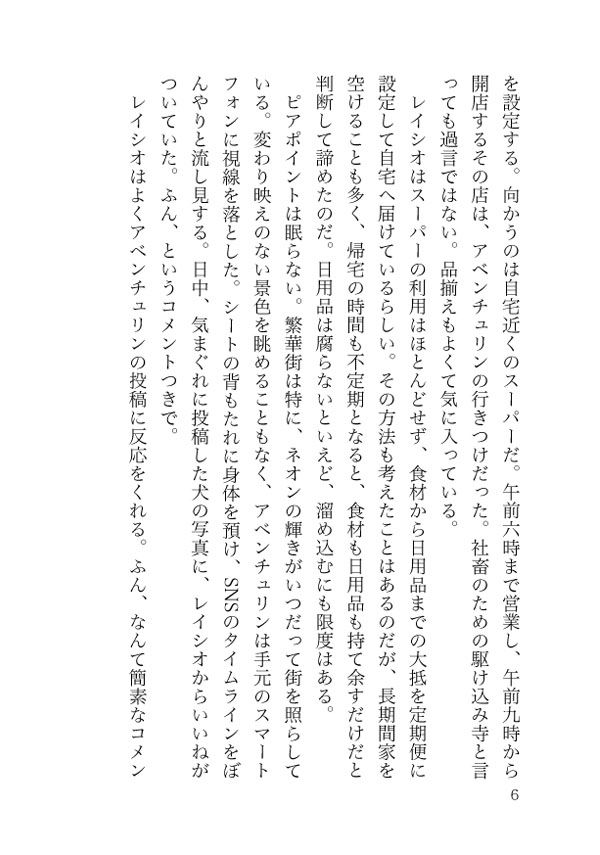 を設定する。向かうのは自宅近くのスーパーだ。午前六時まで営業し、午前九時から
開店するその店は、アベンチュリンの行きつけだった。社畜のための駆け込み寺と言
っても過言ではない。品揃えもよくて気に入っている。
レイシオはスーパーの利用はほとんどせず、食材から日用品までの大抵を定期便に
設定して自宅へ届けているらしい。その方法も考えたことはあるのだが、長期間家を
空けることも多く、帰宅の時間も不定期となると、食材も日用品も持て余すだけだと
判断して諦めたのだ。日用品は腐らないといえど、溜め込むにも限度はある。
ピアポイントは眠らない。繁華街は特に、ネオンの輝きがいつだって街を照らして
いる。変わり映えのない景色を眺めることもなく、アベンチュリンは手元のスマート
フォンに視線を落とした。シートの背もたれに身体を預け、SNSのタイムラインをぼ
んやりと流し見する。日中、気まぐれに投稿した犬の写真に、レイシオからいいねが
ついていた。ふん、というコメントつきで。
レイシオはよくアベンチュリンの投稿に反応をくれる。ふん、なんて簡素なコメン
6